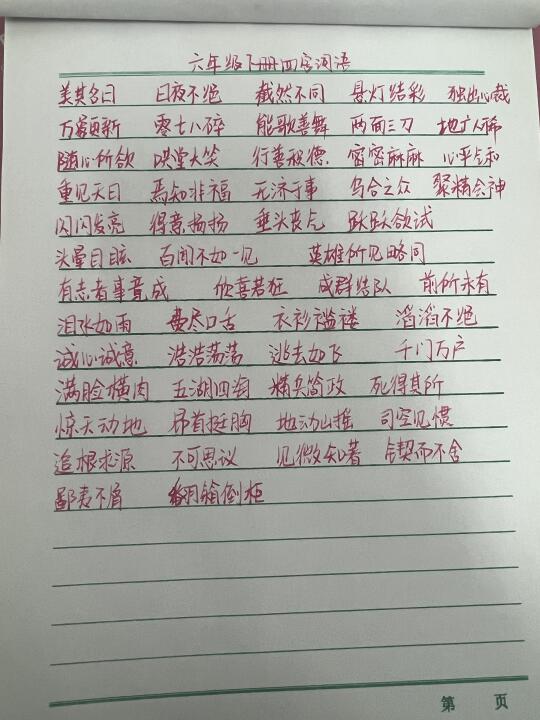 六年级下册四字词语
美其名曰 日夜不绝 截然不同 悬灯结彩 独出心裁
万象更新 零七八碎 能歌善舞 两面三刀 地广人稀
随心所欲 哄堂大笑 行善积德 密密麻麻 心平气和
重见天日 焉知非福 无济于事 乌合之众 聚精会神
闪闪发亮 得意扬扬 垂头丧气 跃跃欲试
头晕目眩 百闻不如一见 英雄所见略同
有志者事竟成 欣喜若狂 成群结队 前所未有
泪流如雨 费尽口舌 衣衫褴褛 滔滔不绝
诚心诚意 浩浩荡荡 逃去如飞 千门万户
满脸横肉 五湖四海 精兵简政 死得其所
惊天动地 昂首挺胸 地动山摇 司空见惯
追根求源 不可思议 见微知著 锲而不舍
鄙夷不屑 翻箱倒柜
第 页